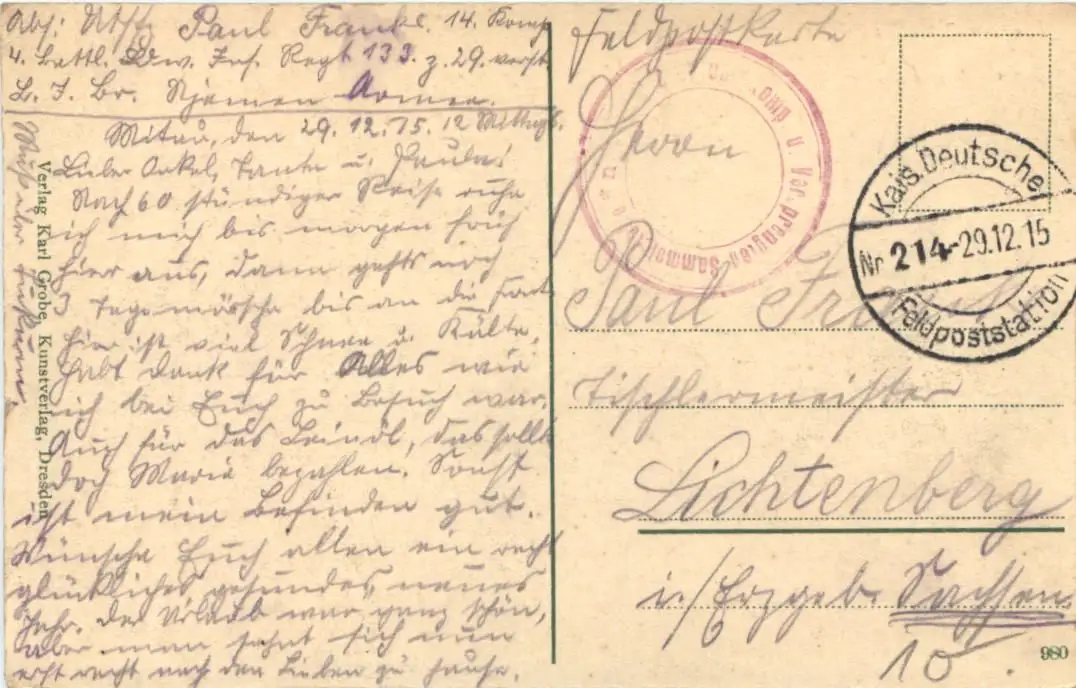 Abs: Utffz. Paul Frank. 14. Komp.
4. Battl. Ldw. Inf. Regt 133. z. 29. verst.
L. I. Br. Njemen Armee.
Mitau, den 29. 12. 15. 12 Mittags.
Lieber Onkel, Tante u. Paula!
Nach 60 stündiger Reise ruhe
ich mich bis morgen früh
hier aus, dann gehts noch
3 Tagemärsche bis an die Front.
Hier ist viel Schnee u. Kälte.
Habt Dank für Alles wie
ich bei Euch zu Besuch war.
Auch für das Leinöl, das sollte
doch Marie bezahlen. Sonst
ist mein Befinden gut.
Wünsche Euch allen ein recht
glückliches gesundes neues
Jahr. Der Urlaub war ganz schön,
aber man sehnt sich nun
erst recht nach den Lieben zu Hause.
Verlag Karl Grobe, Kunstverlag, Dresden
Feldpostkarte
Herrn
Paul Frank
Tischlermeister
Lichtenberg
i./Erzgeb. Sachsen
10
980
Kais. Deutsche
Nr. 214 - 29.12.15
Feldpoststation
u. Sammel